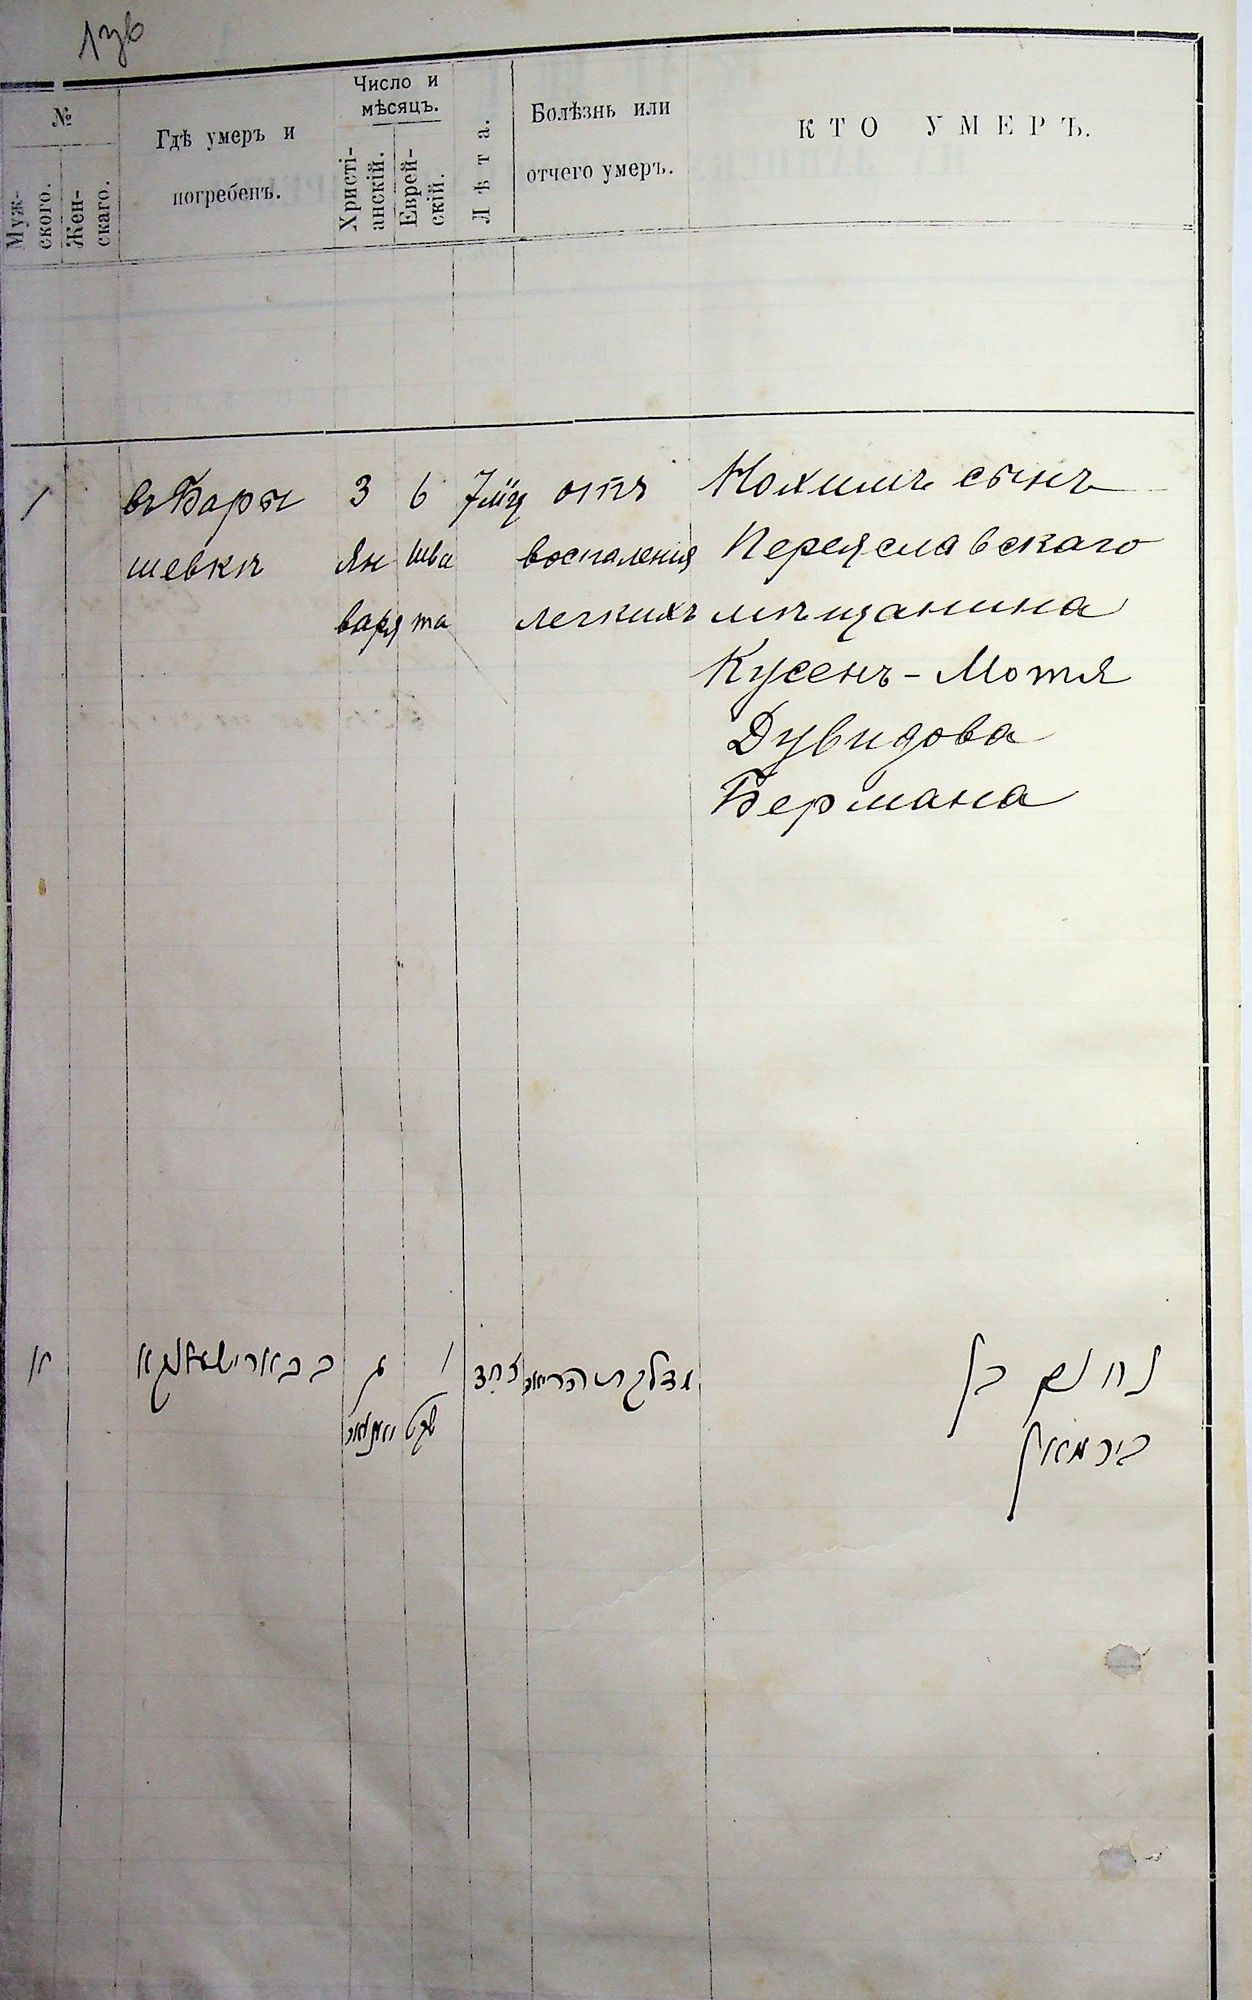 №
Муж-
ского.
Жен-
скаго.
Гдѣ умеръ и
погребенъ.
Число и
мѣсяцъ.
Христі-
анскій.
Еврей-
скій.
Лѣта.
Болѣзнь или
отчего умеръ.
КТО УМЕРЪ.
1
въ Бары
шевкѣ
3
Ян
варя
6
Шва
та
отъ
воспаленія
легкихъ
Нохимъ сынъ
Переяславскаго
мѣщанина
Кусенъ - Мотя
Дувидова
Бермана
א
בבארישעווקא
ג
יאנואר
ו
שבט
דלקת הריאה
נחום בן
בירמאן